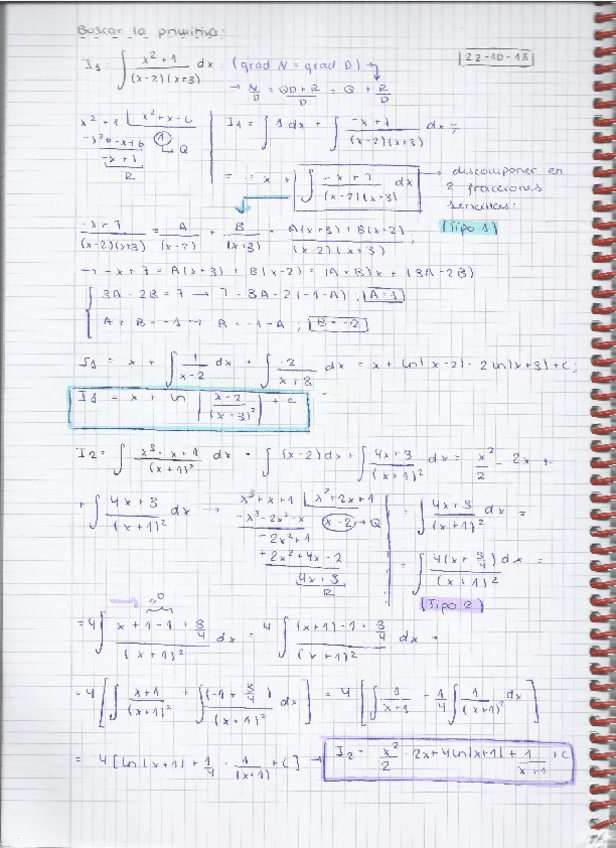 Buscar la primitiva:
22-10-18
I1: ∫ x²+1 / (x-2)(x+3) dx : (grad N = grad D)
→ N/D = QD+R / D = Q + R/D
x²+1 | x²+x-6
-x²-x+6   1 → Q
-x+7
R
I1 = ∫ 1 dx + ∫ -x+7 / (x-2)(x+3) dx =
= x + ∫ -x+7 / (x-2)(x+3) dx → descomponer en
2 fracciones
sencillas:
(Tipo 1)
-x+7 / (x-2)(x+3) = A / (x-2) + B / (x+3) = A(x+3) + B(x-2) / (x-2)(x+3) ;
→ -x+7 = A(x+3) + B(x-2) = (A+B)x + (3A-2B)
3A-2B=7 → 7=3A-2(-1-A) ; A=1
A+B=-1 → B=-1-A ; B=-2
I1 = x + ∫ 1 / x-2 dx + ∫ -2 / x+3 dx = x + ln|x-2| - 2 ln|x+3| + C ;
I1 = x + ln | x-2 / (x+3)² | + C
I2 = ∫ x³+x+1 / (x+1)² dx = ∫ (x-2) dx + ∫ 4x+3 / (x+1)² dx = x²/2 - 2x +
+ ∫ 4x+3 / (x+1)² dx →
x³+x+1 | x²+2x+1
-x³-2x²-x   x-2 → Q
-2x²+1
+2x²+4x+2
4x+3
R
= ∫ 4x+3 / (x+1)² dx =
= ∫ 4(x+3/4) / (x+1)² dx =
(Tipo 2)
= 4∫ x+1-1+3/4 / (x+1)² dx = 4 ∫ (x+1)-1+3/4 / (x+1)² dx =
= 4 [ ∫ x+1 / (x+1)² + ∫ (-1+3/4) / (x+1)² dx ] = 4 [ ∫ 1 / x+1 - 1/4 ∫ 1 / (x+1)² dx ]
= 4 [ ln|x+1| + 1/4 · 1 / (x+1) + C ] → I2 = x²/2 - 2x + 4 ln|x+1| + 1 / x+1 + C